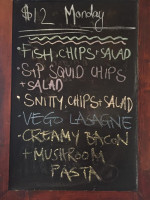 $12 Monday
• FISH, CHIPS + SALAD
• S+P SQUID CHIPS
+ SALAD
• SNITTY, CHIPS + SALAD
• VEGO LASAGNE
• CREAMY BACON
+ MUSHROOM
PASTA